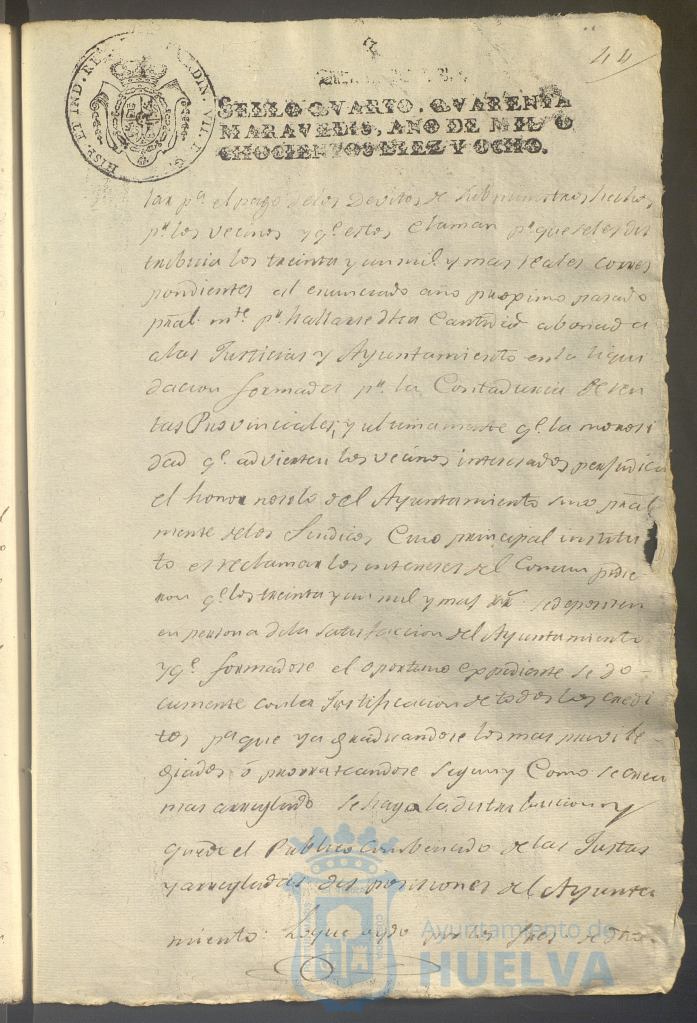 44
HISP. ET IND. RE DIN. VII. D. G.
SELLO QVARTO. QVARENTA
MARAVEDIS. AÑO DE MIL O
CHOCIENTOS DIEZ Y OCHO.
lar pa. el pago de los Devitos de Subministros hechos
pr. los vecinos y qe. estos claman pr. que se les dis
tribuia los treinta y un mil y mas reales corres
pondientes al enunciado año proximo pasado
pral. mte. pr. hallarse dha Cantidad abonada
a las Justicias y Ayuntamiento en la liqui
dacion formada pr. la Contaduria de ren
tas Provinciales; y ultimamente qe. la morosi
dad qe. advierten los vecinos interesados perjudica
el honor no solo del Ayuntamiento sino pral
mente de los Sindicos Cuio principal institu
to es reclamar los intereses del Comun pidie
ron qe. los treinta y un mil y mas rs. se depositen
en persona de la satisfaccion del Ayuntamiento
y qe. formadose el oportuno expediente se do-
cumente con la Justificacion de todos los credi
tos pa que ya graduandose los mas privile-
giados ó prorrateandose segun y Como se crea
mas arreglado se haga la distribucion y
quede el Publico combencido de las Justas
y arregladas disposiciones del Ayunta-
miento: Lo que oydo por los Sres. de dho.
Ayuntamiento de
HUELVA